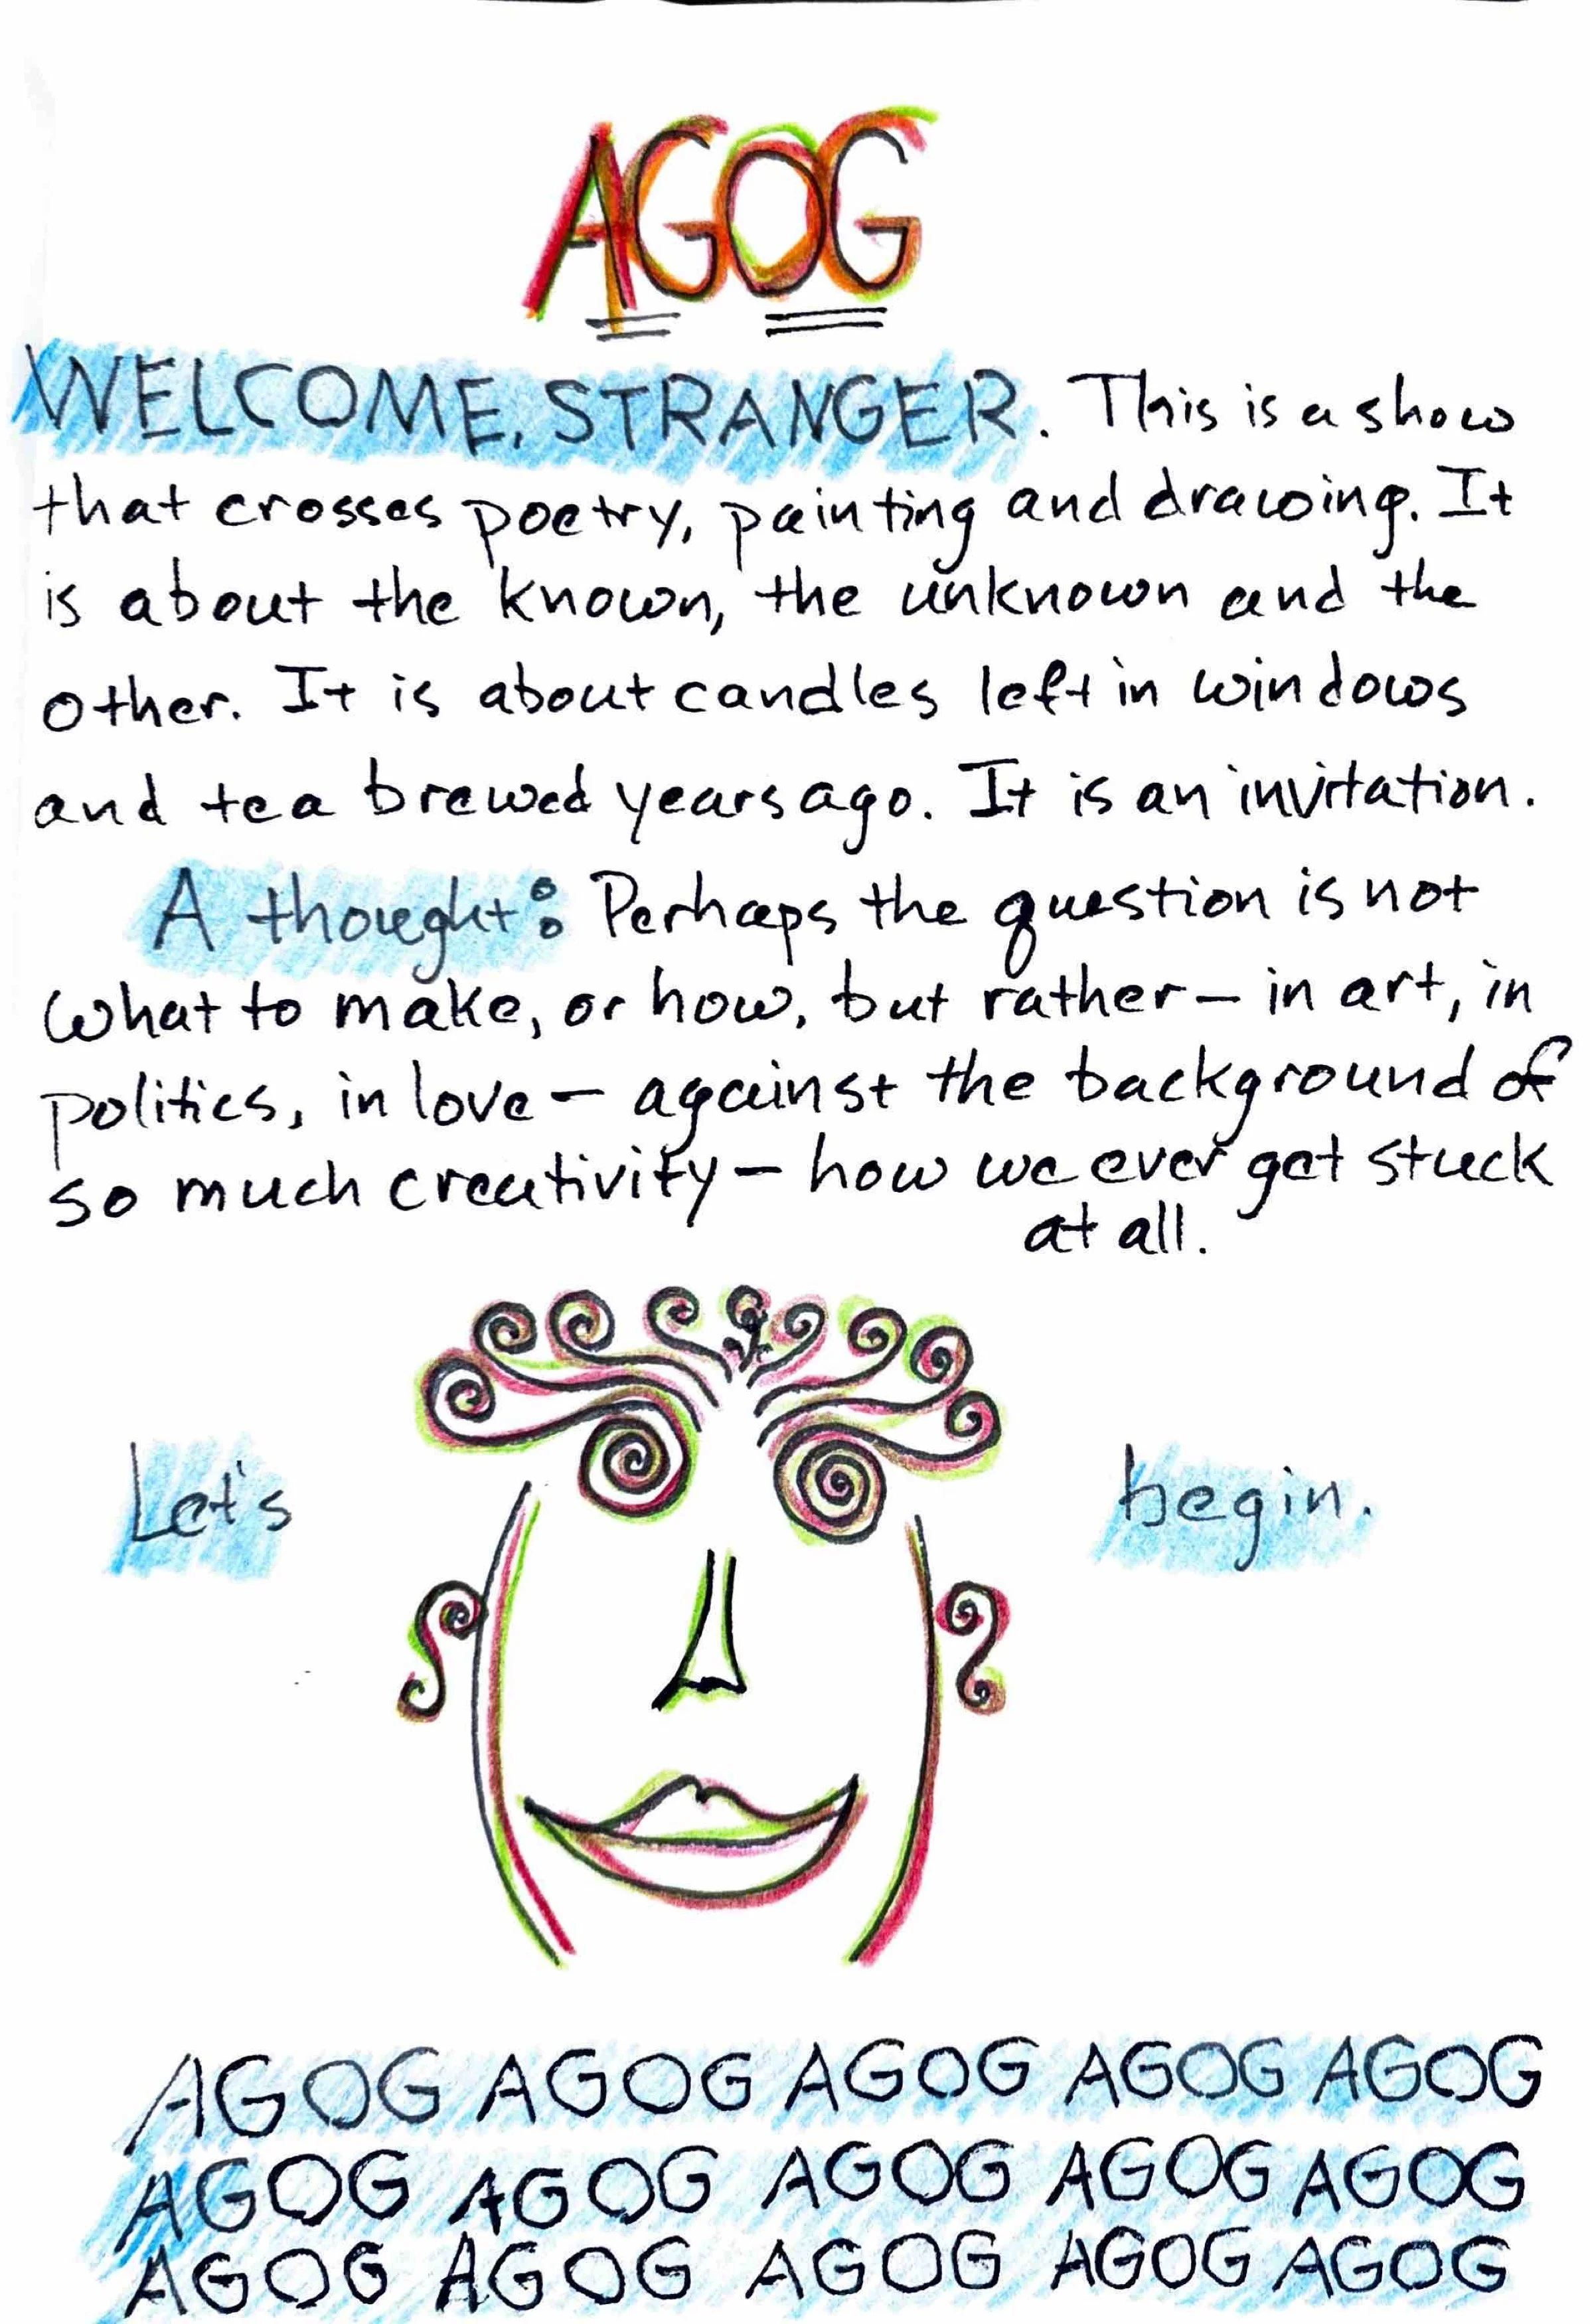 AGOG
WELCOME, STRANGER. This is a show
that crosses poetry, painting and drawing. It
is about the known, the unknown and the
other. It is about candles left in windows
and tea brewed years ago. It is an invitation.
A thought: Perhaps the question is not
what to make, or how, but rather – in art, in
politics, in love – against the background of
so much creativity – how we ever get stuck
at all.
Let's begin.
AGOG AGOG AGOG AGOG AGOG
AGOG AGOG AGOG AGOG AGOG
AGOG AGOG AGOG AGOG AGOG